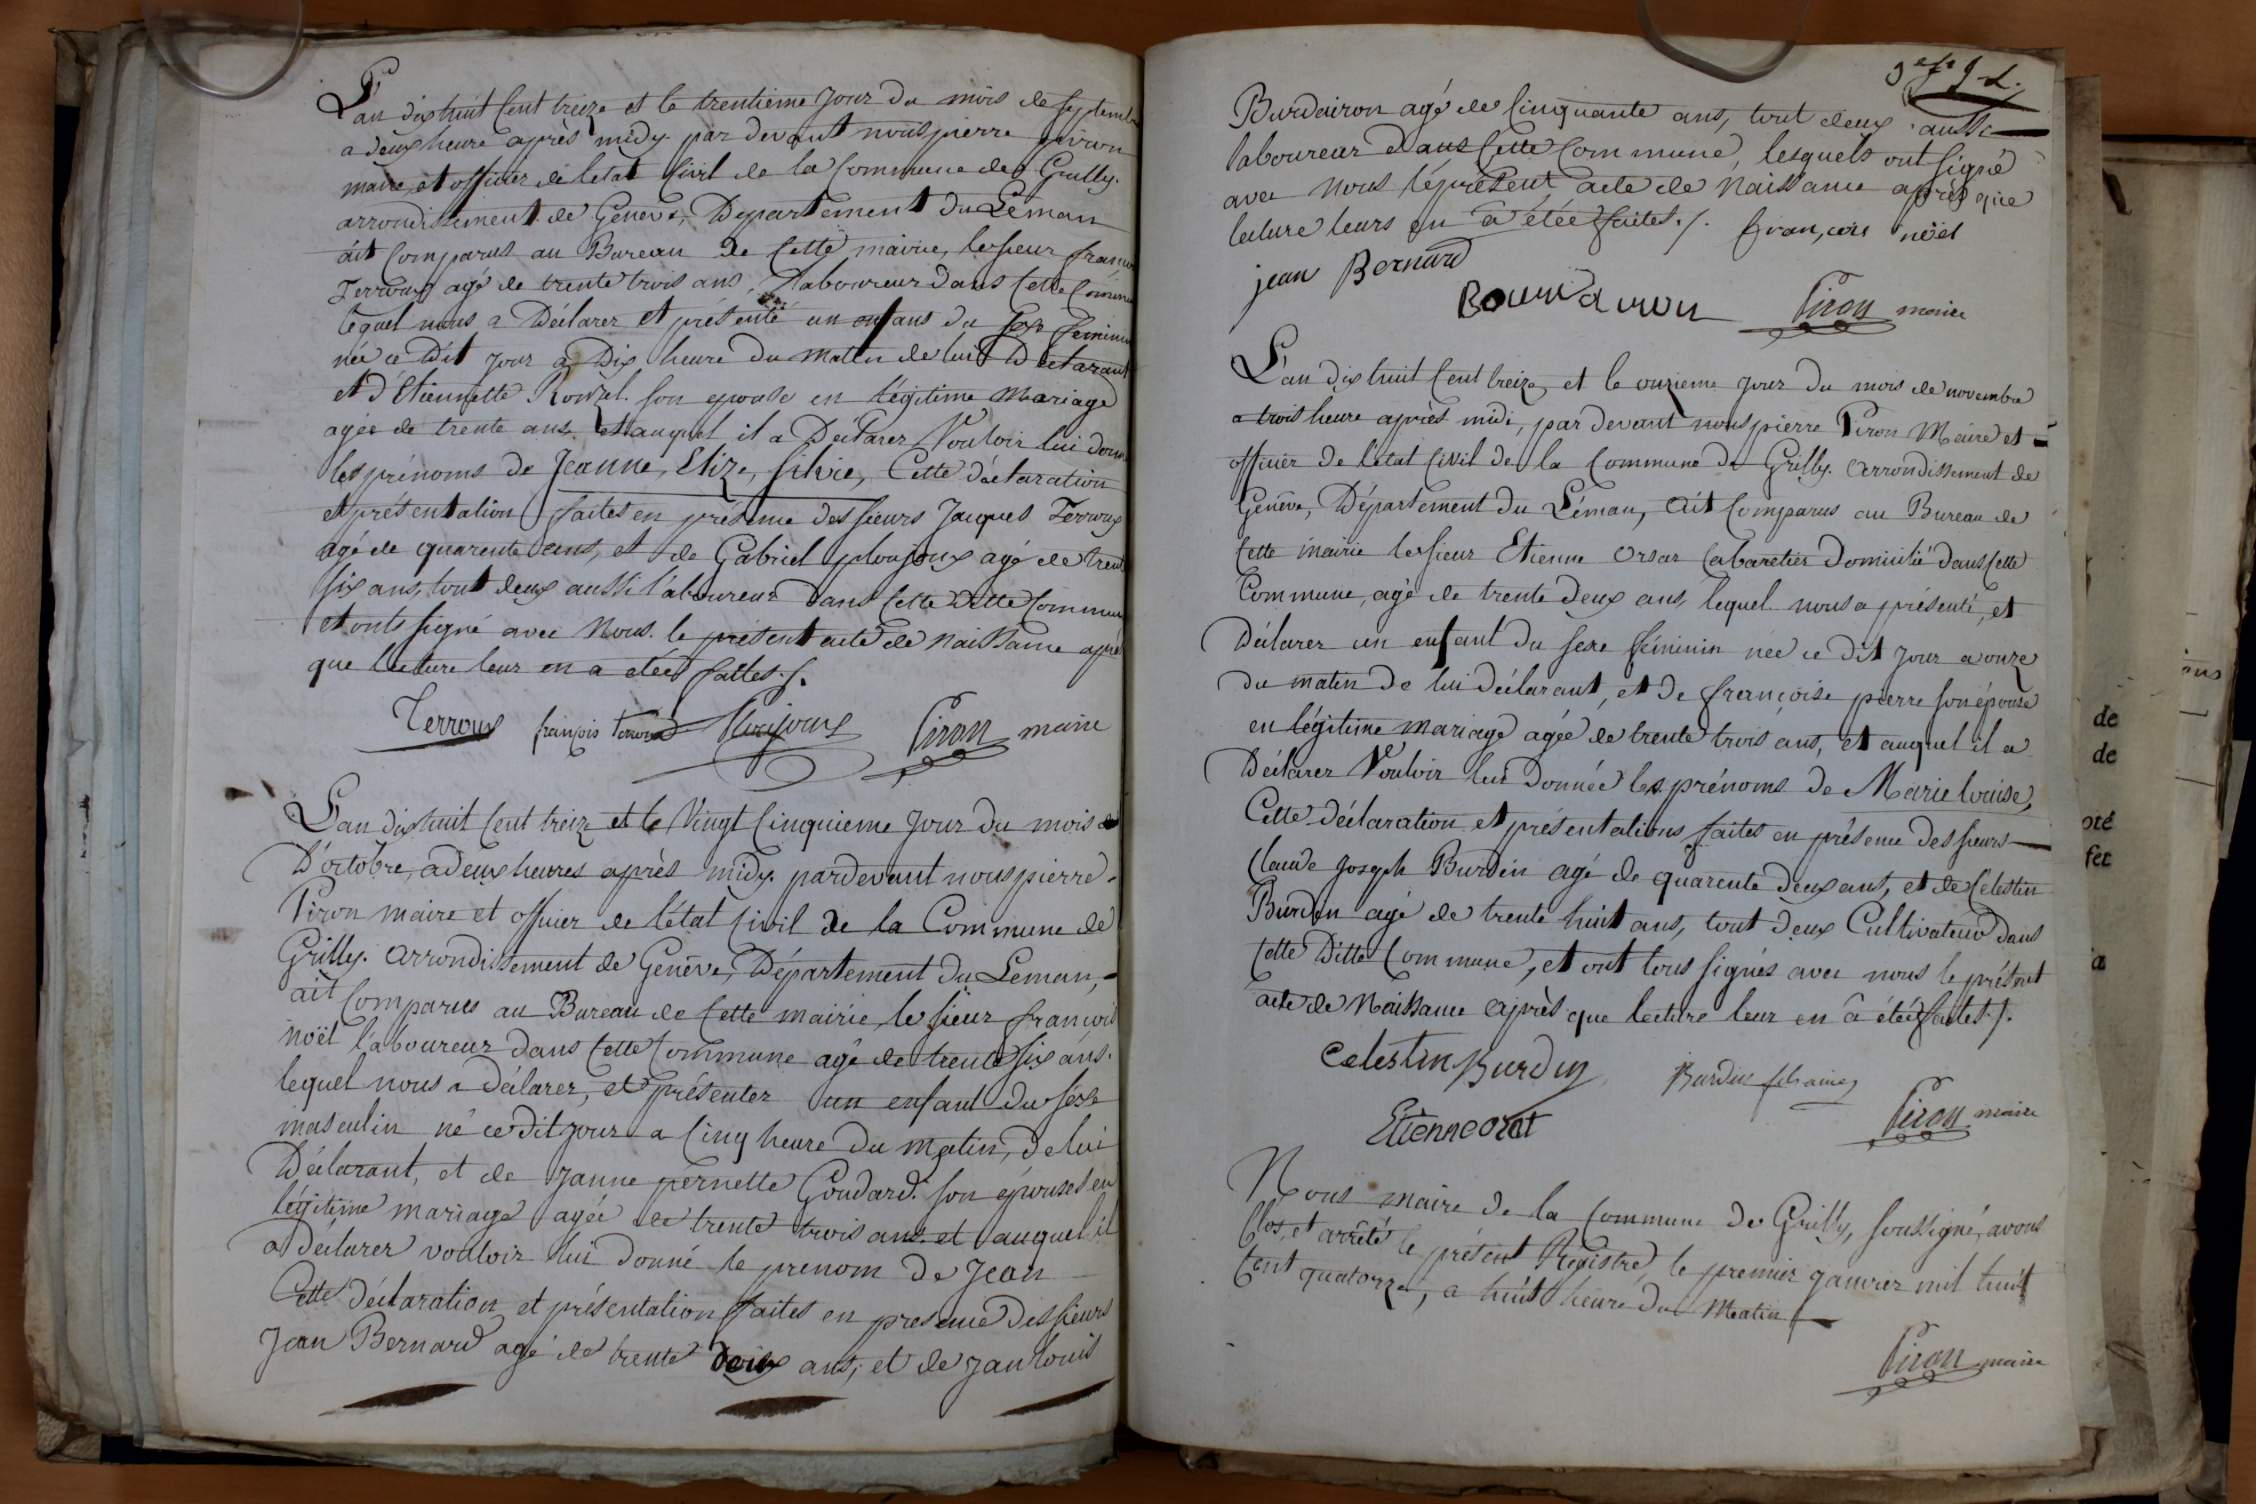 L'an dix huit Cent treize et le trentieme Jour du mois de Septemb
a deux heure après midy par devant nous pierre piron
maire et officier de létat Civil de la Commune de Grilly.
arrondissement de Genève, Département du Léman
ait Comparus au Bureau de Cette mairie, le sieur françois
Terroux agé de trente trois ans, Laboureur dans Cette Commune
lequel nous a Déclarer et présenté un enfans du Sexe féminin
née ce Dit Jour a Dix heure du matin de lui Déclarant
et d'Etiennette Rouzel. son epouse en légitime mariage
agée de trente ans. et auquel il a Déclarer Vouloir lui donn
les prénoms de Jeanne, Elize, Silvie, Cette déclaration
et présentation faites en présence des sieurs Jacques Terroux
agé de quarente ans, et de Gabriel ploujoux agé de trent
six ans, tout deux aussi laboureur dans Cette ditte Commun
et onts signé avec Nous. le présent acte de naissance aprè
que lecture leur en a etée faites ./.
Terroux françois Terroux Ploujoux Piron maire
L'an dix huit Cent treize et le Vingt Cinquieme Jour du mois de
D'octobre, a deux heures après midy. pardevant nous pierre
Piron maire et officier de l'état Civil de la Commune de
Grilly. arrondissement de Genève, Département du Leman,
ait Comparus au Bureau de Cette mairie, le sieur françois
noël laboureur dans Cette Commune agé de trente six ans.
lequel nous a déclarer, et présenter un enfant du sexe
masculin né ce dit jour a Cinq heure du matin, de lui
Déclarant, et de Janne pernette Goudard. son épouses en
légitime mariage agée de trente trois ans et auquel il
a déclarer vouloir lui donné le prenom de Jean
Cette déclaration et présentation faites en presence des sieurs
Jean Bernard agé de trente deux ans, et de Jan louis
Burdairon agé de Cinquante ans, tout deux aussi
laboureur dans Cette Commune, lesquels ont signé
avec nous le présent acte de naissance après que
lecture leurs en a étée faites ./. françois noël
jean Bernard
Bourdairon Piron maire
L'an dix huit Cent treize, et le onzieme jour du mois de novembre
a trois heure après midi, par devant nous pierre Piron Maire et
officier de l'état Civil de la Commune de Grilly. arrondissement de
Genève, Département du Léman, ait Comparus au Bureau de
Cette mairie le sieur Etienne Orsat Cabaretier Domicilié dans Cette
Commune, agé de trente deux ans, lequel nous a présenté, et
Déclarer un enfant du sexe féminin née ce dit jour a onze
du matin de lui déclarant, et de françoise pierre son épouse
en légitime mariage agée de trente trois ans, et auquel il a
Déclarer Vouloir lui donnée les prénoms de Marie louise,
Cette déclaration et présentations faites en présence des sieurs
Claude Joseph Burdin agé de quarente deux ans, et de Celestin
Burdin agé de trente huit ans, tout deux Cultivateur dans
Cette Ditte Commune, et ont tous signés avec nous le présent
acte de Naissance après que lecture leur en a étée faites ./.
Celestin Burdin Burdin
Etienne orsat Piron maire
Nous maire de la Commune de Grilly, soussigné, avons
Clos, et arrêté le présent Registre, le premier Janvier mil huit
Cent quatorze, a huit heure du Matin
Piron maire